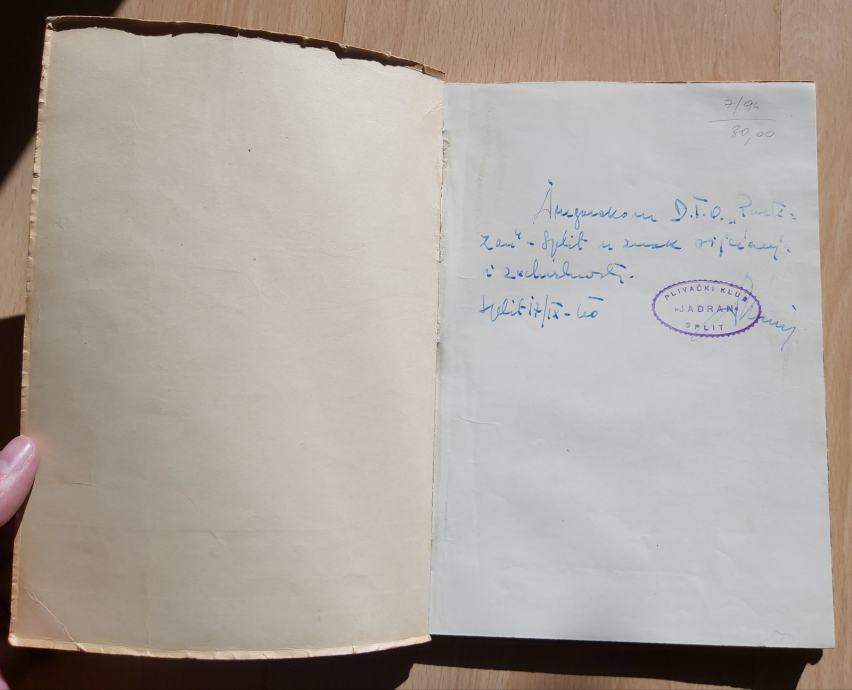 7/94
80,00
D.T.O. „Parti-
zan“ - Split u znak sjećanja
i zahvalnosti.
Split 17/IX-60
PLIVAČKI KLUB
»JADRAN«
SPLIT